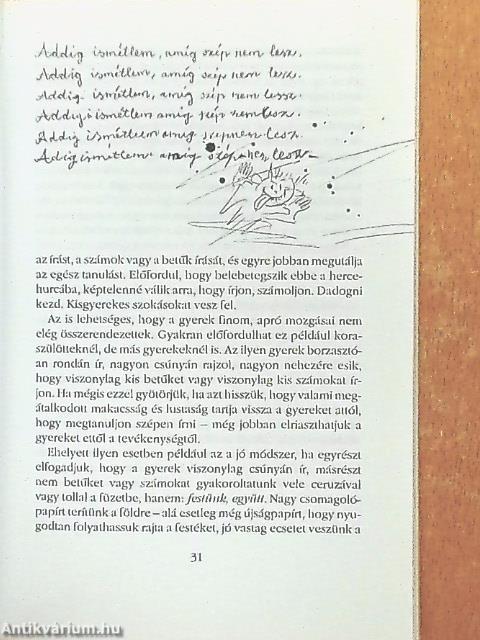 Addig ismétlem, amíg szép nem lesz.
Addig ismétlem, amíg szép nem lesz.
Addig ismétlem, amíg szép nem lessz.
Addig ismétlem amíg szép nem lesz.
Addig ismétlem amig szépnem lesz.
Adig ismétlem amig szépnem lesz
az írást, a számok vagy a betűk írását, és egyre jobban megutálja
az egész tanulást. Előfordul, hogy belebetegszik ebbe a herce-
hurcába, képtelenné válik arra, hogy írjon, számoljon. Dadogni
kezd. Kisgyerekes szokásokat vesz fel.
Az is lehetséges, hogy a gyerek finom, apró mozgásai nem
elég összerendezettek. Gyakran előfordulhat ez például kora-
szülötteknél, de más gyerekeknél is. Az ilyen gyerek borzasztó-
an rondán ír, nagyon csúnyán rajzol, nagyon nehezére esik,
hogy viszonylag kis betűket vagy viszonylag kis számokat ír-
jon. Ha mégis ezzel gyötörjük, ha azt hisszük, hogy valami meg-
átalkodott makacsság és lustaság tartja vissza a gyereket attól,
hogy megtanuljon szépen írni – még jobban elriaszthatjuk a
gyereket ettől a tevékenységtől.
Ehelyett ilyen esetben például az a jó módszer, ha egyrészt
elfogadjuk, hogy a gyerek viszonylag csúnyán ír, másrészt
nem betűket vagy számokat gyakoroltatunk vele ceruzával
vagy tollal a füzetbe, hanem: festünk, együtt. Nagy csomagoló-
papírt terítünk a földre – alá esetleg még újságpapírt, hogy nyu-
godtan folyathassuk rajta a festéket, jó vastag ecsetet veszünk a
31
Antikvárium.hu